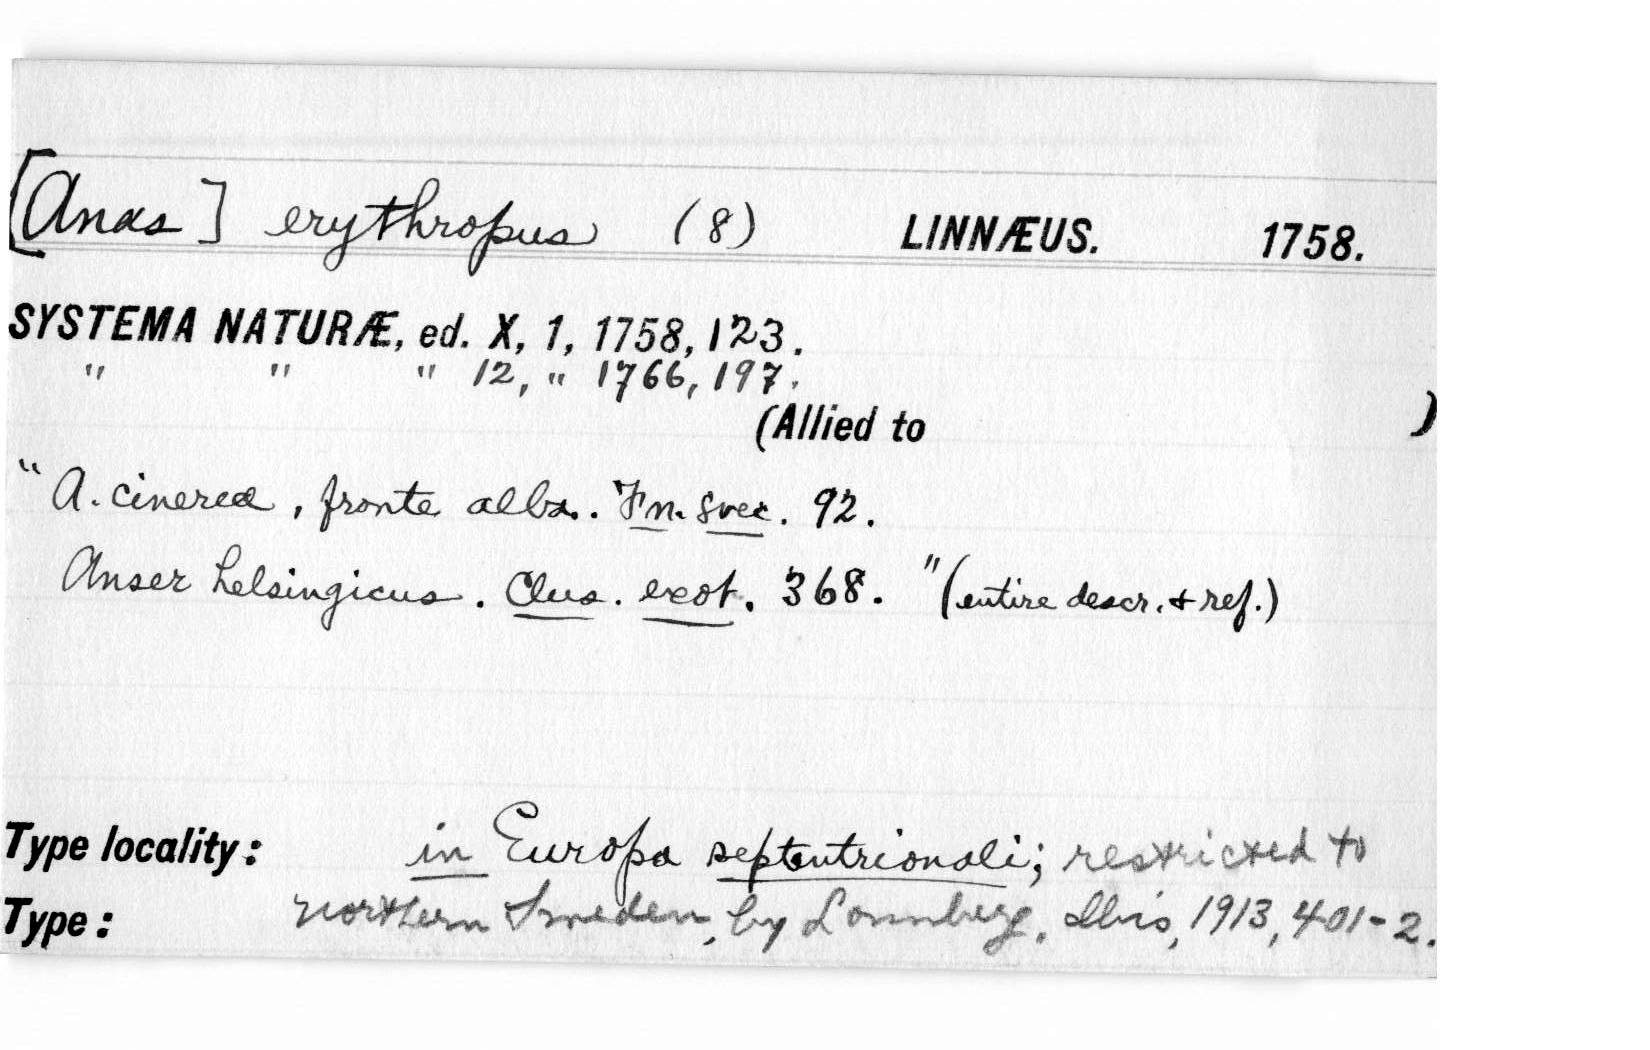 [Anas] erythropus (8) LINNÆUS. 1758.
SYSTEMA NATURÆ, ed. X, 1, 1758, 123.
" " " 12, " 1766, 197.
(Allied to )
"A. cinerea, fronte alba. Fn. Svec. 92.
Anser helsingicus. Clus. exot. 368. " (entire descr. & ref.)
Type locality: in Europa septentrionali; restricted to
Type: northern Sweden, by Lonnberg, Ibis, 1913, 401-2.